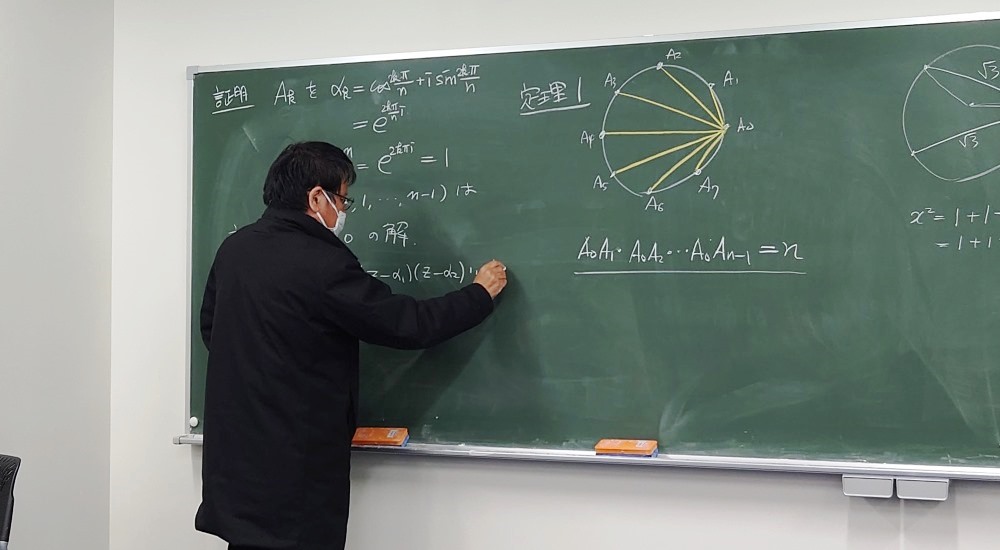 証明 A_k を α_k = cos 2kπ/n + i sin 2kπ/n
= e^{2kπ/n i}
n = e^{2kπi} = 1
, 1, ⋯, n-1) は
0 の解.
z-α₁)(z-α₂)⋯
定理1
A₂
A₃
A₁
A₄
A₀
A₅
A₇
A₆
A₀A₁・A₀A₂⋯A₀Aₙ₋₁ = n
√3
√3
x² = 1+1-
= 1+1